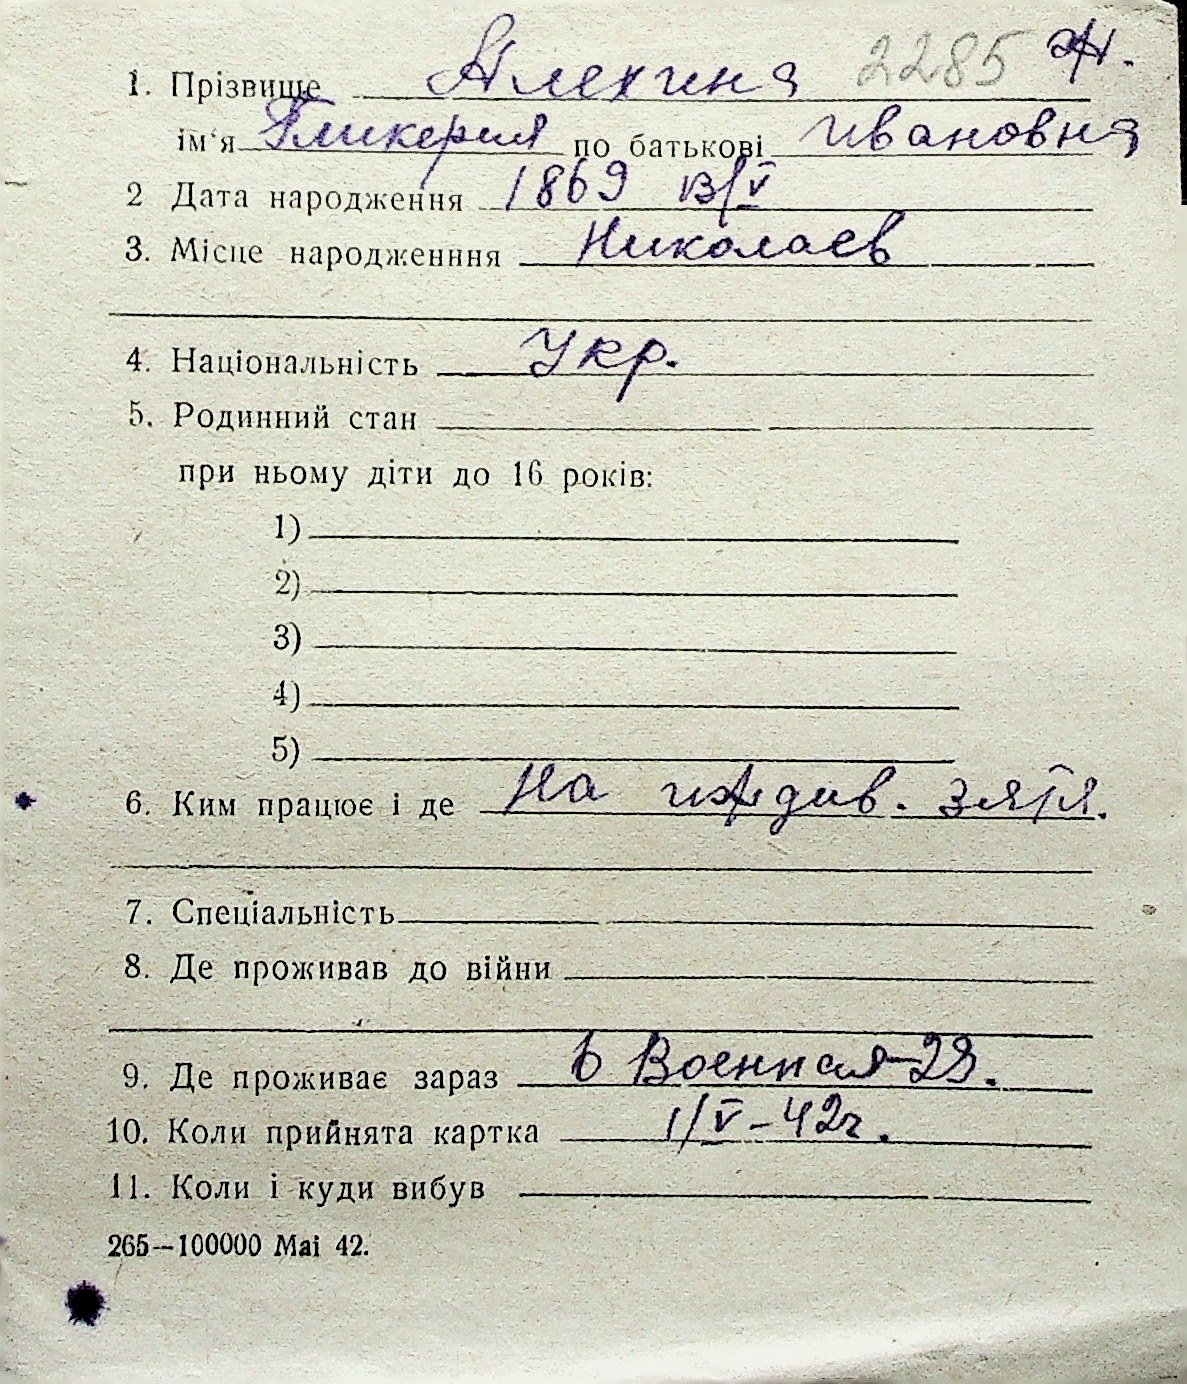 2285 Ж.
1. Прізвище Алехина
ім'я Гликерия по батькові Ивановна
2 Дата народження 1869 13/V
3. Місце народженння Николаев
4. Національність Укр.
5. Родинний стан
при ньому діти до 16 років:
1)
2)
3)
4)
5)
6. Ким працює і де На иждив. зятя.
7. Спеціальність
8. Де проживав до війни
9. Де проживає зараз 6 Военная-29.
10. Коли прийнята картка 1/V-42г.
11. Коли і куди вибув
265—100000 Mai 42.